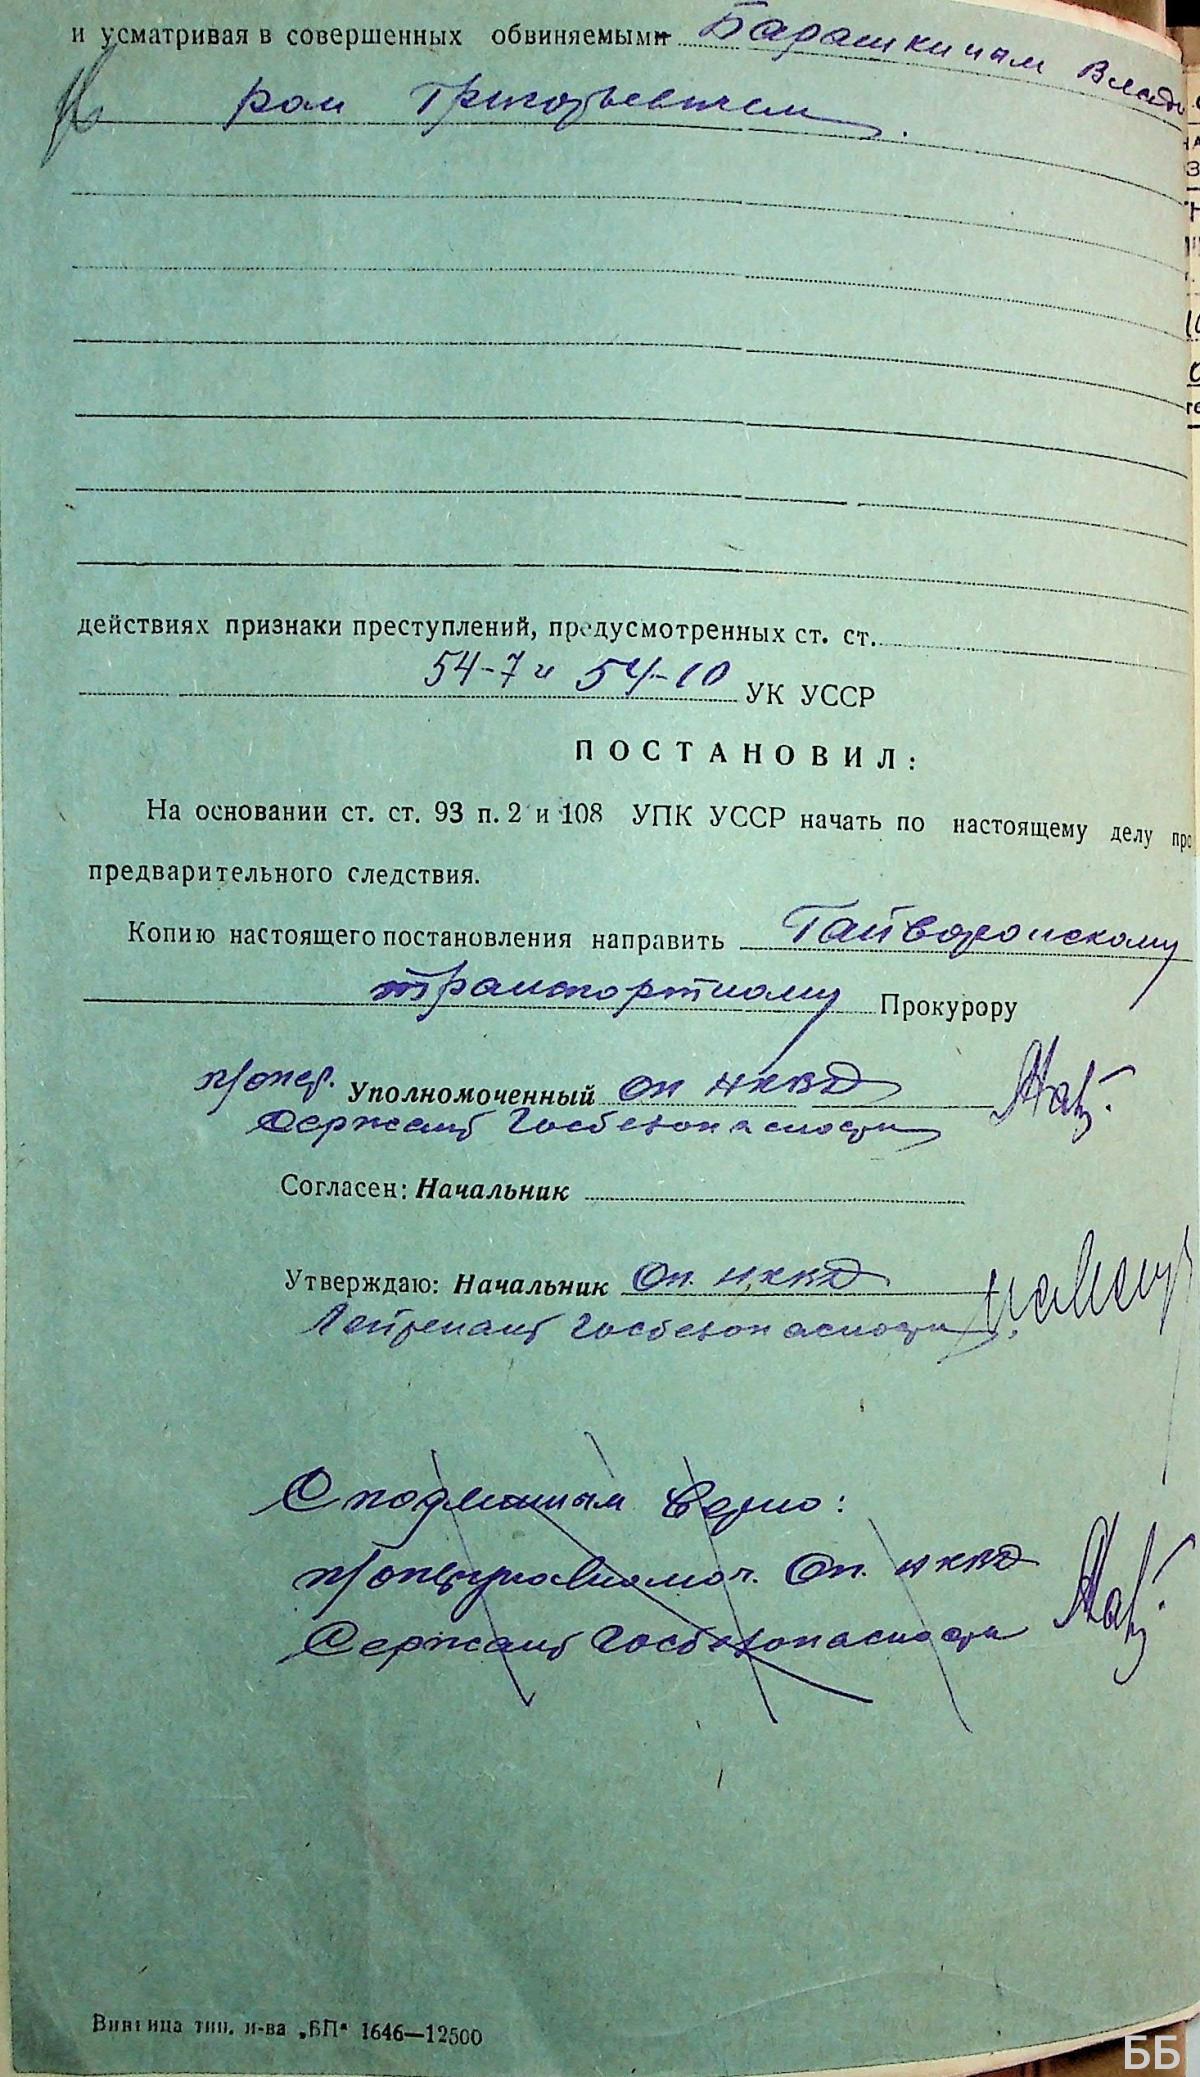 и усматривая в совершенных обвиняемыми Барашкиным Влади
ром Григорьевичем.
действиях признаки преступлений, предусмотренных ст. ст.
54-7 и 54-10 УК УССР
ПОСТАНОВИЛ:
На основании ст. ст. 93 п. 2 и 108 УПК УССР начать по настоящему делу про
предварительного следствия.
Копию настоящего постановления направить Гайворонскому
транспортному Прокурору
п/опер. Уполномоченный Оп НКВД
Сержант Госбезопасности
Согласен: Начальник
Утверждаю: Начальник Оп. НКВД
Лейтенант Госбезопасности
С подлинным верно:
п/оперуполномоч. Оп. НКВД
Сержант Госбезопасности
Винница тип. и-ва „БП“ 1646—12500
ББ